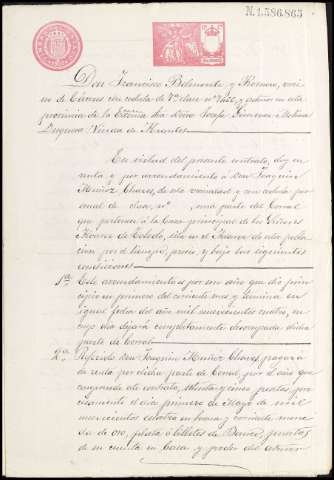 N. 1.586.865
Don Francisco Belmonte y Romero, veci-
no de Cáceres con cedula de 7ª clase nº y admor en esta
provincia de la Exma Sra Doña Josefa Jimenez y Molina
Duquesa Viuda de Abrantes
En virtud del presente contrato, doy en
renta y por arrendamiento a Don Joaquin
Muñoz Chaves, de esta vecindad y con cedula per-
sonal de clase, nº , una parte del Corral
que pertenece á la Casa principal de los Señores
de Toledo, sita en el de esta pobla-
cion por el tiempo, precio, y bajo las siguientes
condiciones
1ª Este arrendamiento es por un año que dio prin-
cipio en primero del corriente mes y termina en
igual fecha del año mil novecientos cuatro, en
cuyo dia dejará completamente desocupada dicha
parte de Corral
2ª Referido Don Joaquin Muñoz Chaves, pagará
de renta por dicha parte de Corral, por el año que
comprende este contrato, setenta y cinco pesetas, pre-
cisamente el dia primero de Mayo de mil
novecientos cuatro en buena y corriente mone-
da de oro, plata ó billetes de Banco, puestas
de su cuenta en Casa y poder del admor